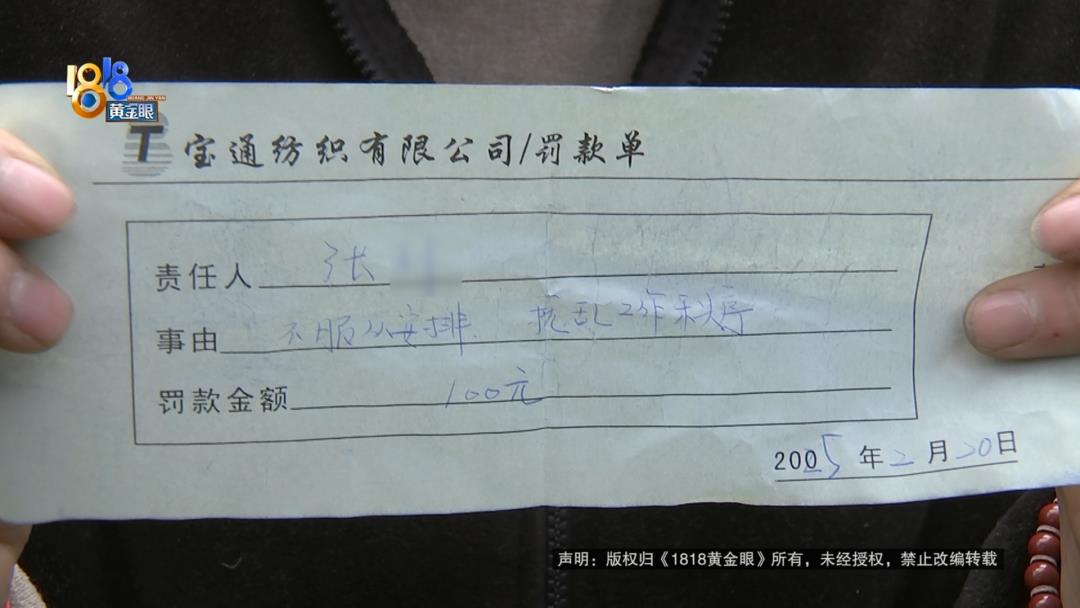 1818
HUANG JIN YAN
黄金眼
T 宝通纺织有限公司/罚款单
责任人 张
事由 不服从安排 扰乱工作秩序
罚款金额 100元
2005年2月20日
声明：版权归《1818黄金眼》所有，未经授权，禁止改编转载